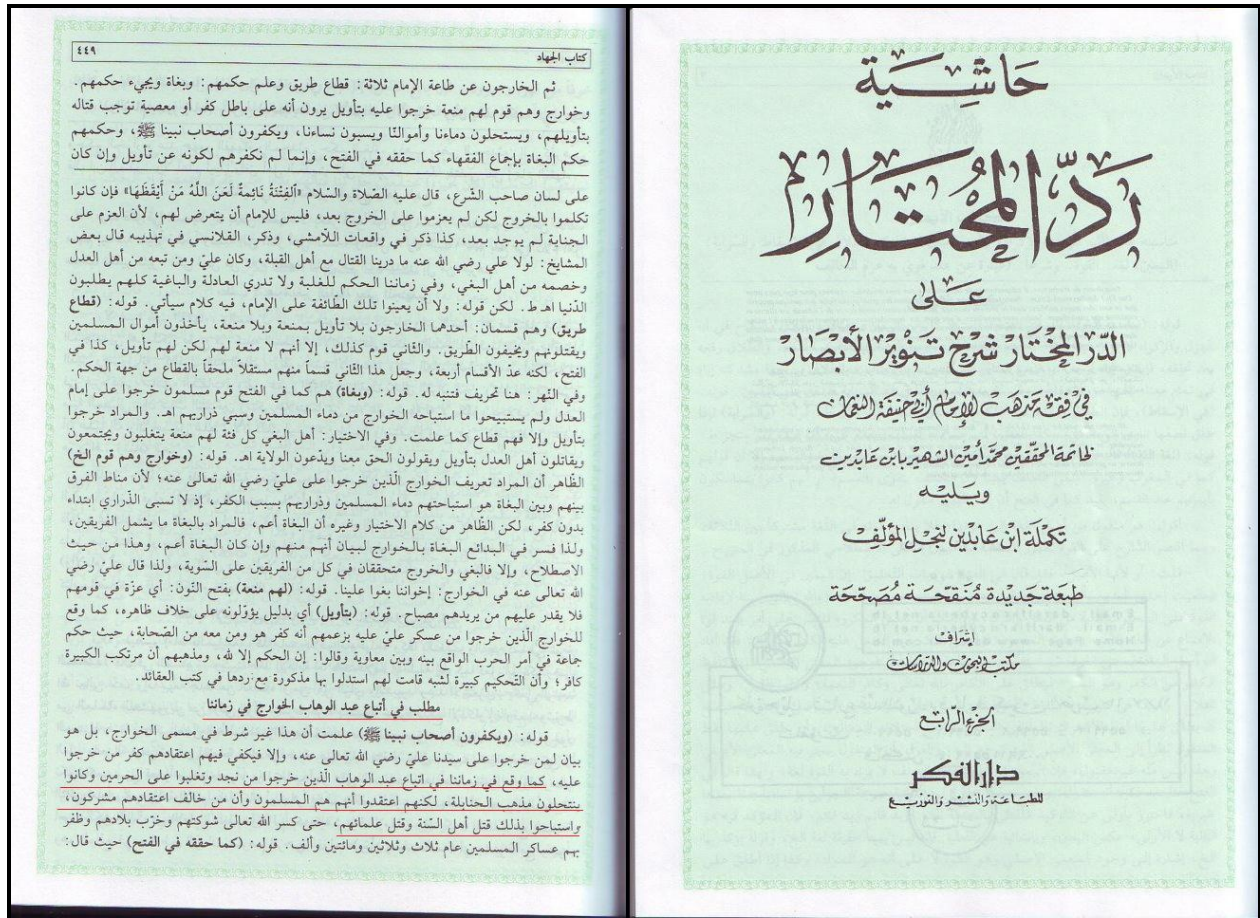 حَاشِيَة
رَدّ المُحْتَار
عَلى
الدّر المختَار شرح تنوير الأبصَار
في فقه مذهب الإمام أبي حنيفة النعمان
لخاتمة المحققين محمد أمين الشهير بابن عابدين
ويليه
تكملة ابن عابدين لنجل المؤلف
طبعة جديدة منقحة مصححة
إشراف
مكتب البحوث والدراسات
الجزء الرابع
دار الفكر
للطباعة والنشر والتوزيع
كتاب الجهاد
٤٤٩
ثم الخارجون عن طاعة الإمام ثلاثة: قطاع طريق وعلم حكمهم: وبغاة ويجيء حكمهم.
وخوارج وهم قوم لهم منعة خرجوا عليه بتأويل يرون أنه على باطل كفر أو معصية توجب قتاله
بتأويلهم، ويستحلون دماءنا وأموالنا ويسبون نساءنا، ويكفرون أصحاب نبينا ﷺ، وحكمهم
حكم البغاة بإجماع الفقهاء كما حققه في الفتح، وإنما لم نكفرهم لكونه عن تأويل وإن كان
على لسان صاحب الشّرع، قال عليه الصّلاة والسّلام «ألفِتْنَةُ نَائِمةٌ لَعَنَ اللَّهُ مَنْ أَيْقَظَهَا» فإن كانوا
تكلموا بالخروج لكن لم يعزموا على الخروج بعد، فليس للإمام أن يتعرض لهم، لأن العزم على
الجناية لم يوجد بعد، كذا ذكر في واقعات اللّامشي، وذكر، القلانسي في تهذيبه قال بعض
المشايخ: لولا علي رضي الله عنه ما درينا القتال مع أهل القبلة، وكان عليّ ومن تبعه من أهل العدل
وخصمه من أهل البغي، وفي زماننا الحكم للغلبة ولا تدري العادلة والباغية كلهم يطلبون
الدّنيا اهـ ط. لكن قوله: ولا أن يعينوا تلك الطّائفة على الإمام، فيه كلام سيأتي. قوله: (قطاع
طريق) وهم قسمان: أحدهما الخارجون بلا تأويل بمنعة وبلا منعة، يأخذون أموال المسلمين
ويقتلونهم ويخيفون الطّريق. والثاني قوم كذلك، إلا أنهم لا منعة لهم لكن لهم تأويل، كذا في
الفتح، لكنه عدّ الأقسام أربعة، وجعل هذا الثّاني قسماً منهم مستقلاً ملحقاً بالقطاع من جهة الحكم.
وفي النّهر: هنا تحريف فتنبه له. قوله: (وبغاة) هم كما في الفتح قوم مسلمون خرجوا على إمام
العدل ولم يستبيحوا ما استباحه الخوارج من دماء المسلمين وسبي ذراريهم اهـ. والمراد خرجوا
بتأويل وإلا فهم قطاع كما علمت. وفي الاختيار: أهل البغي كل فئة لهم منعة يتغلبون ويجتمعون
ويقاتلون أهل العدل بتأويل ويقولون الحق معنا ويدّعون الولاية اهـ. قوله: (وخوارج وهم قوم الخ)
الظّاهر أن المراد تعريف الخوارج الّذين خرجوا على عليّ رضي الله تعالى عنه؛ لأن مناط الفرق
بينهم وبين البغاة هو استباحتهم دماء المسلمين وذراريهم بسبب الكفر، إذ لا تسبى الذّراري ابتداء
بدون كفر، لكن الظّاهر من كلام الاختيار وغيره أن البغاة أعم، فالمراد بالبغاة ما يشمل الفريقين،
ولذا فسر في البدائع البغاة بالخوارج لبيان أنهم منهم وإن كان البغاة أعم، وهذا من حيث
الاصطلاح، وإلا فالبغي والخروج متحققان في كل من الفريقين على السّوية، ولذا قال عليّ رضي
الله تعالى عنه في الخوارج: إخواننا بغوا علينا. قوله: (لهم منعة) بفتح النّون: أي عزة في قومهم
فلا يقدر عليهم من يريدهم مصباح. قوله: (بتأويل) أي بدليل يؤوّلونه على خلاف ظاهره، كما وقع
للخوارج الّذين خرجوا من عسكر عليّ عليه بزعمهم أنه كفر هو ومن معه من الصّحابة، حيث حكم
جماعة في أمر الحرب الواقع بينه وبين معاوية وقالوا: إن الحكم إلا لله، ومذهبهم أن مرتكب الكبيرة
كافر؛ وأن التّحكيم كبيرة لشبه قامت لهم استدلوا بها مذكورة مع ردها في كتب العقائد.
مطلب في أتباع عبد الوهاب الخوارج في زماننا
قوله: (ويكفرون أصحاب نبينا ﷺ) علمت أن هذا غير شرط في مسمى الخوارج، بل هو
بيان لمن خرجوا على سيدنا عليّ رضي الله تعالى عنه، وإلا فيكفي فيهم اعتقادهم كفر من خرجوا
عليه، كما وقع في زماننا في اتباع عبد الوهاب الّذين خرجوا من نجد وتغلبوا على الحرمين وكانوا
ينتحلون مذهب الحنابلة، لكنهم اعتقدوا أنهم هم المسلمون وأن من خالف اعتقادهم مشركون،
واستباحوا بذلك قتل أهل السّنة وقتل علمائهم، حتى كسر الله تعالى شوكتهم وخرّب بلادهم وظفر
بهم عساكر المسلمين عام ثلاث وثلاثين ومائتين وألف. قوله: (كما حققه في الفتح) حيث قال: